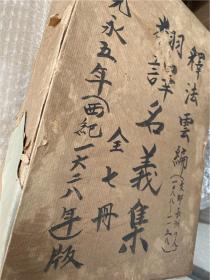 釋法雲編
翻譯名義集
全七冊
元永五年（西紀一六二八年版